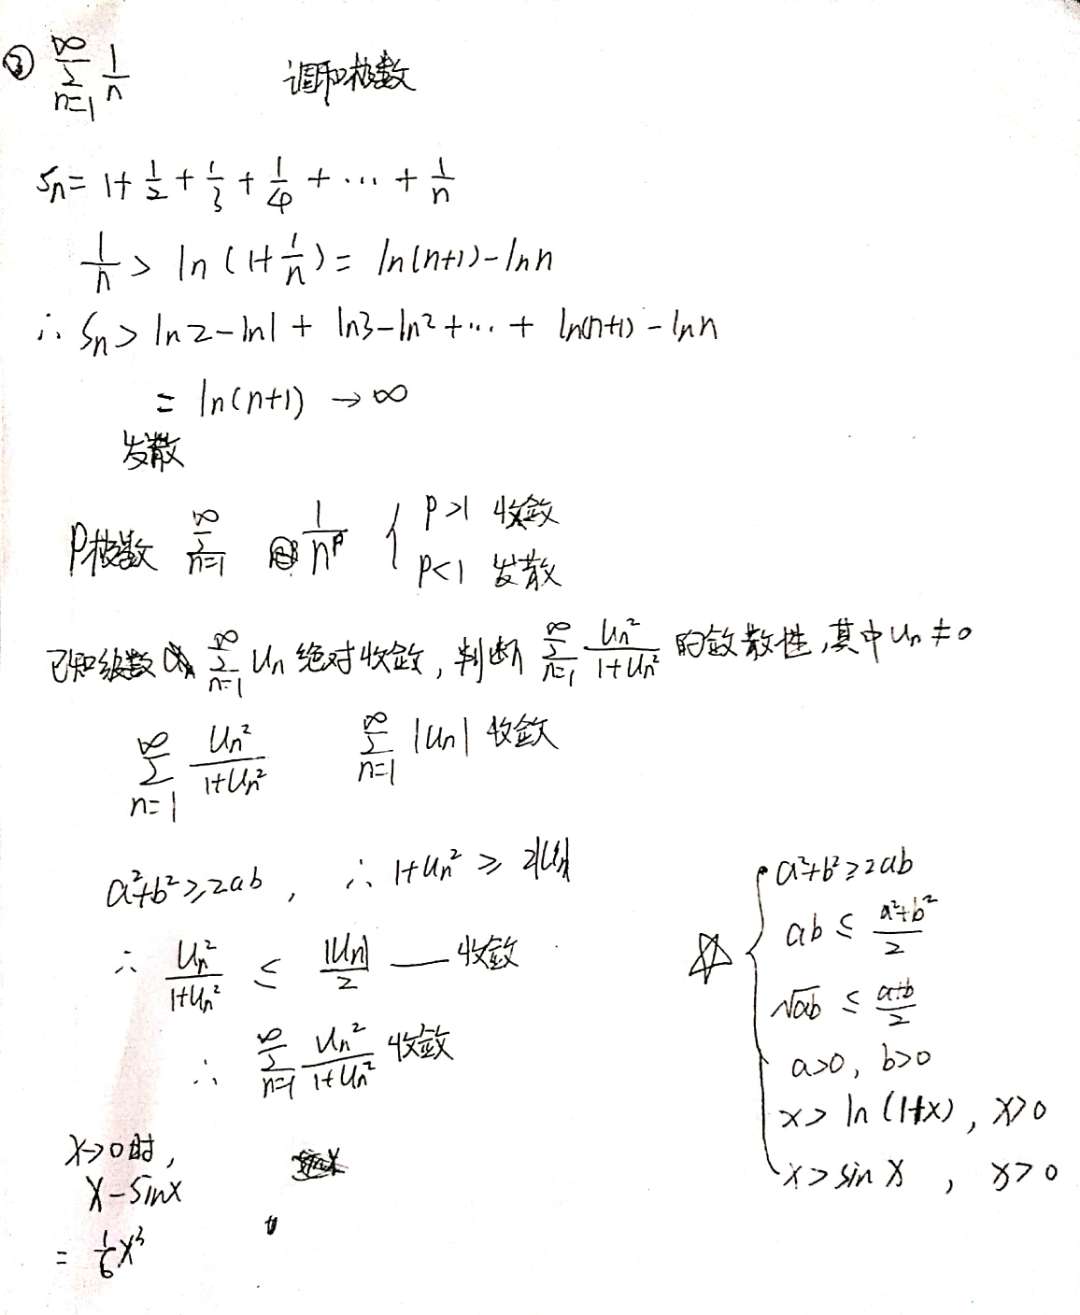 ③ ∑_{n=1}^{∞} 1/n 调和级数
Sn = 1 + 1/2 + 1/3 + 1/4 + ⋯ + 1/n
1/n > ln(1+1/n) = ln(n+1) - ln n
∴ Sn > ln2 - ln1 + ln3 - ln2 + ⋯ + ln(n+1) - ln n
= ln(n+1) → ∞
发散
P级数 ∑_{n=1}^{∞} 1/n^p { P>1 收敛
P<1 发散
已知级数 ∑_{n=1}^{∞} Un 绝对收敛, 判断 ∑_{n=1}^{∞} Un²/(1+Un²) 的敛散性, 其中 Un ≠ 0
∑_{n=1}^{∞} Un²/(1+Un²) ∑_{n=1}^{∞} |Un| 收敛
a²+b² ≥ 2ab, ∴ 1+Un² ≥ 2|Un|
∴ Un²/(1+Un²) ≤ |Un|/2 — 收敛
∴ ∑_{n=1}^{∞} Un²/(1+Un²) 收敛
x→0时,
x - sinx
= 1/6 x³
☆ { a²+b² ≥ 2ab
ab ≤ (a²+b²)/2
√ab ≤ (a+b)/2
a>0, b>0
x > ln(1+x), x>0
x > sin x, x>0